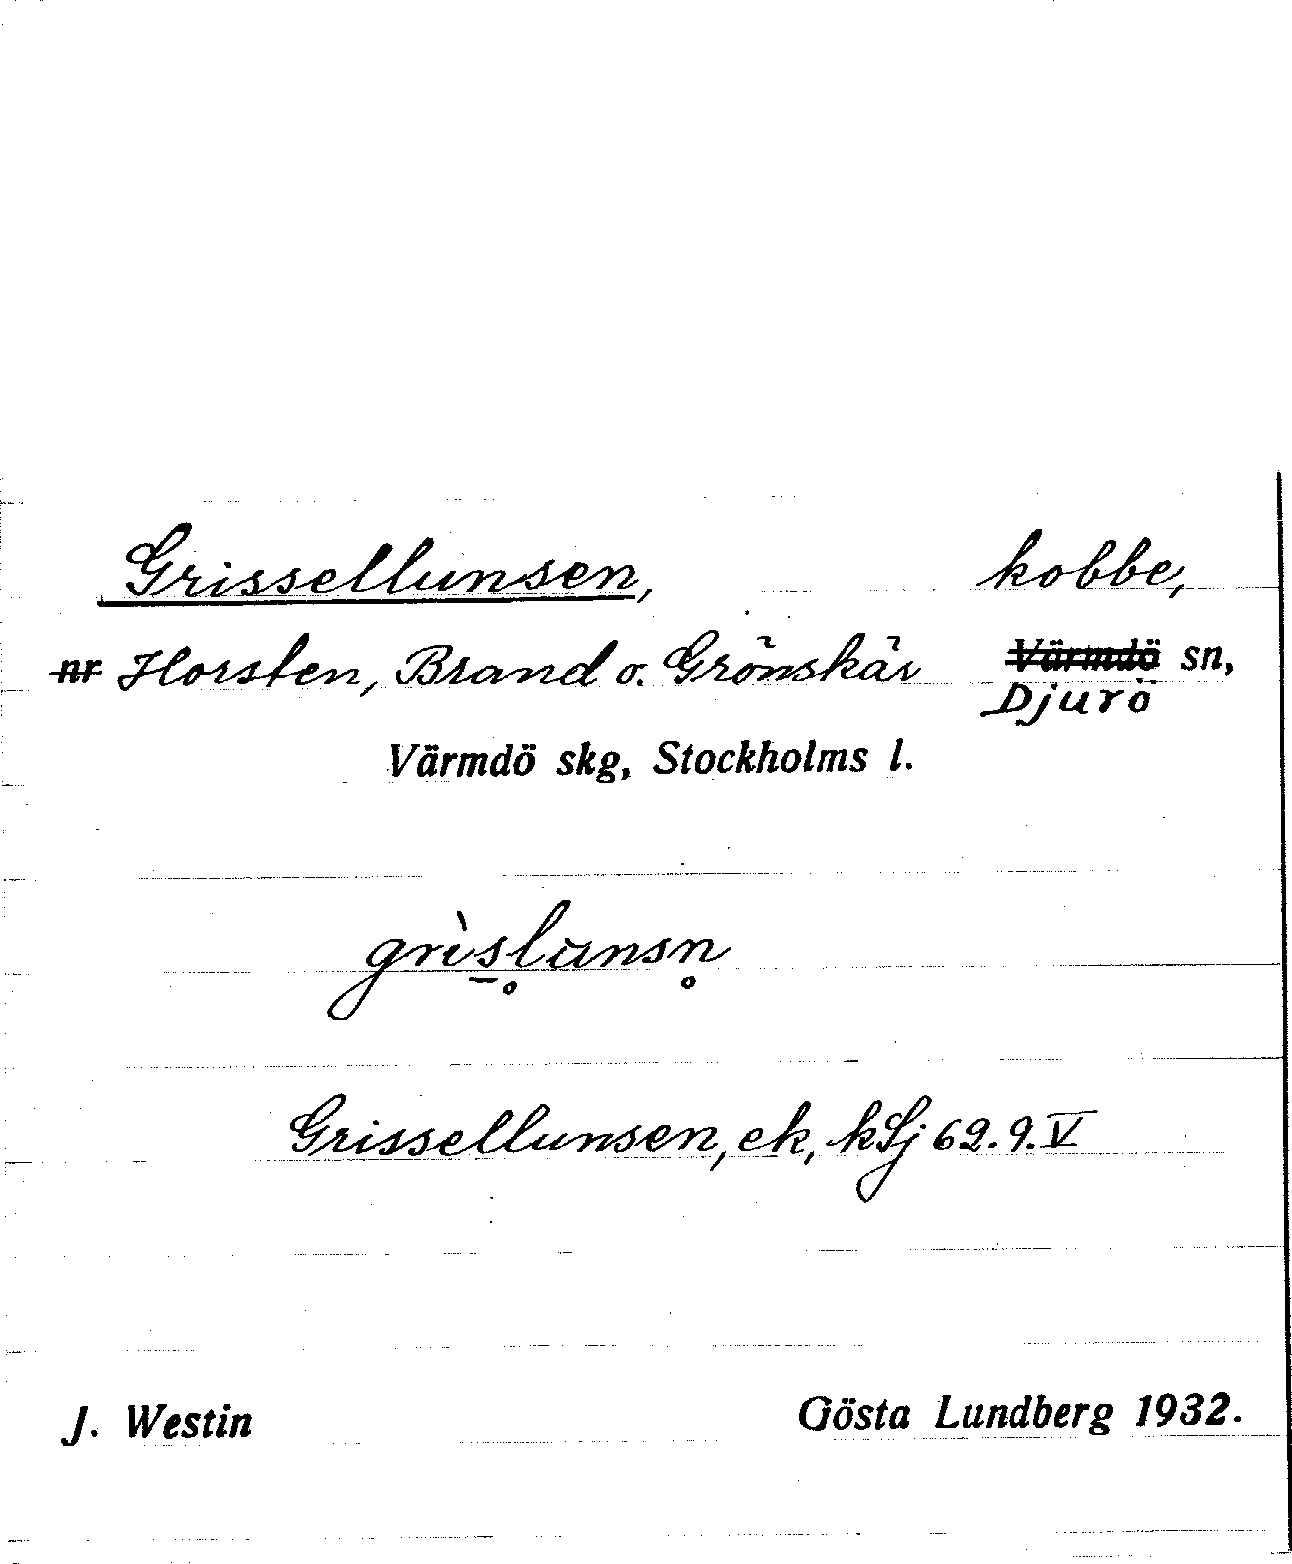 Grissellunsen, kobbe,
nr Horsten, Brand o. Grönskär Värmdö sn,
Djurö
Värmdö skg, Stockholms l.
grìs̠l̥unsn̥
Grissellunsen, ek, kSj 62.9.V
J. Westin Gösta Lundberg 1932.